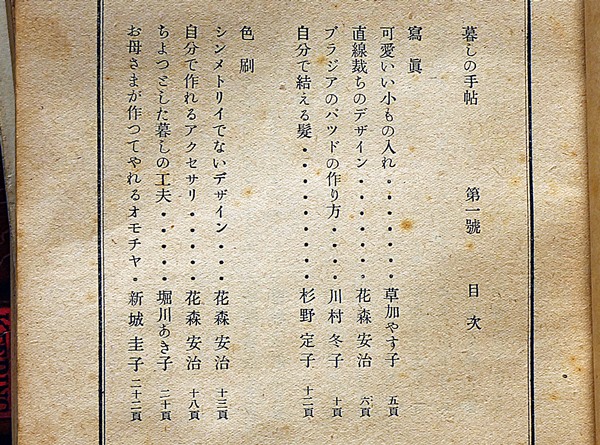 暮しの手帖 第一號 目次
寫眞
可愛いい小もの入れ・・・・・・・草加やす子 五頁
直線裁ちのデザイン・・・・・・・花森安治 六頁
ブラジアのパツドの作り方・・・・川村冬子 十頁
自分で結える髮・・・・・・・・・杉野定子 十二頁
色刷
シンメトリイでないデザイン・・・花森安治 十三頁
自分で作れるアクセサリ・・・・・花森安治 十八頁
ちよつとした暮しの工夫・・・・・堀川あき子 二十頁
お母さまが作つてやれるオモチヤ・新城圭子 二十二頁